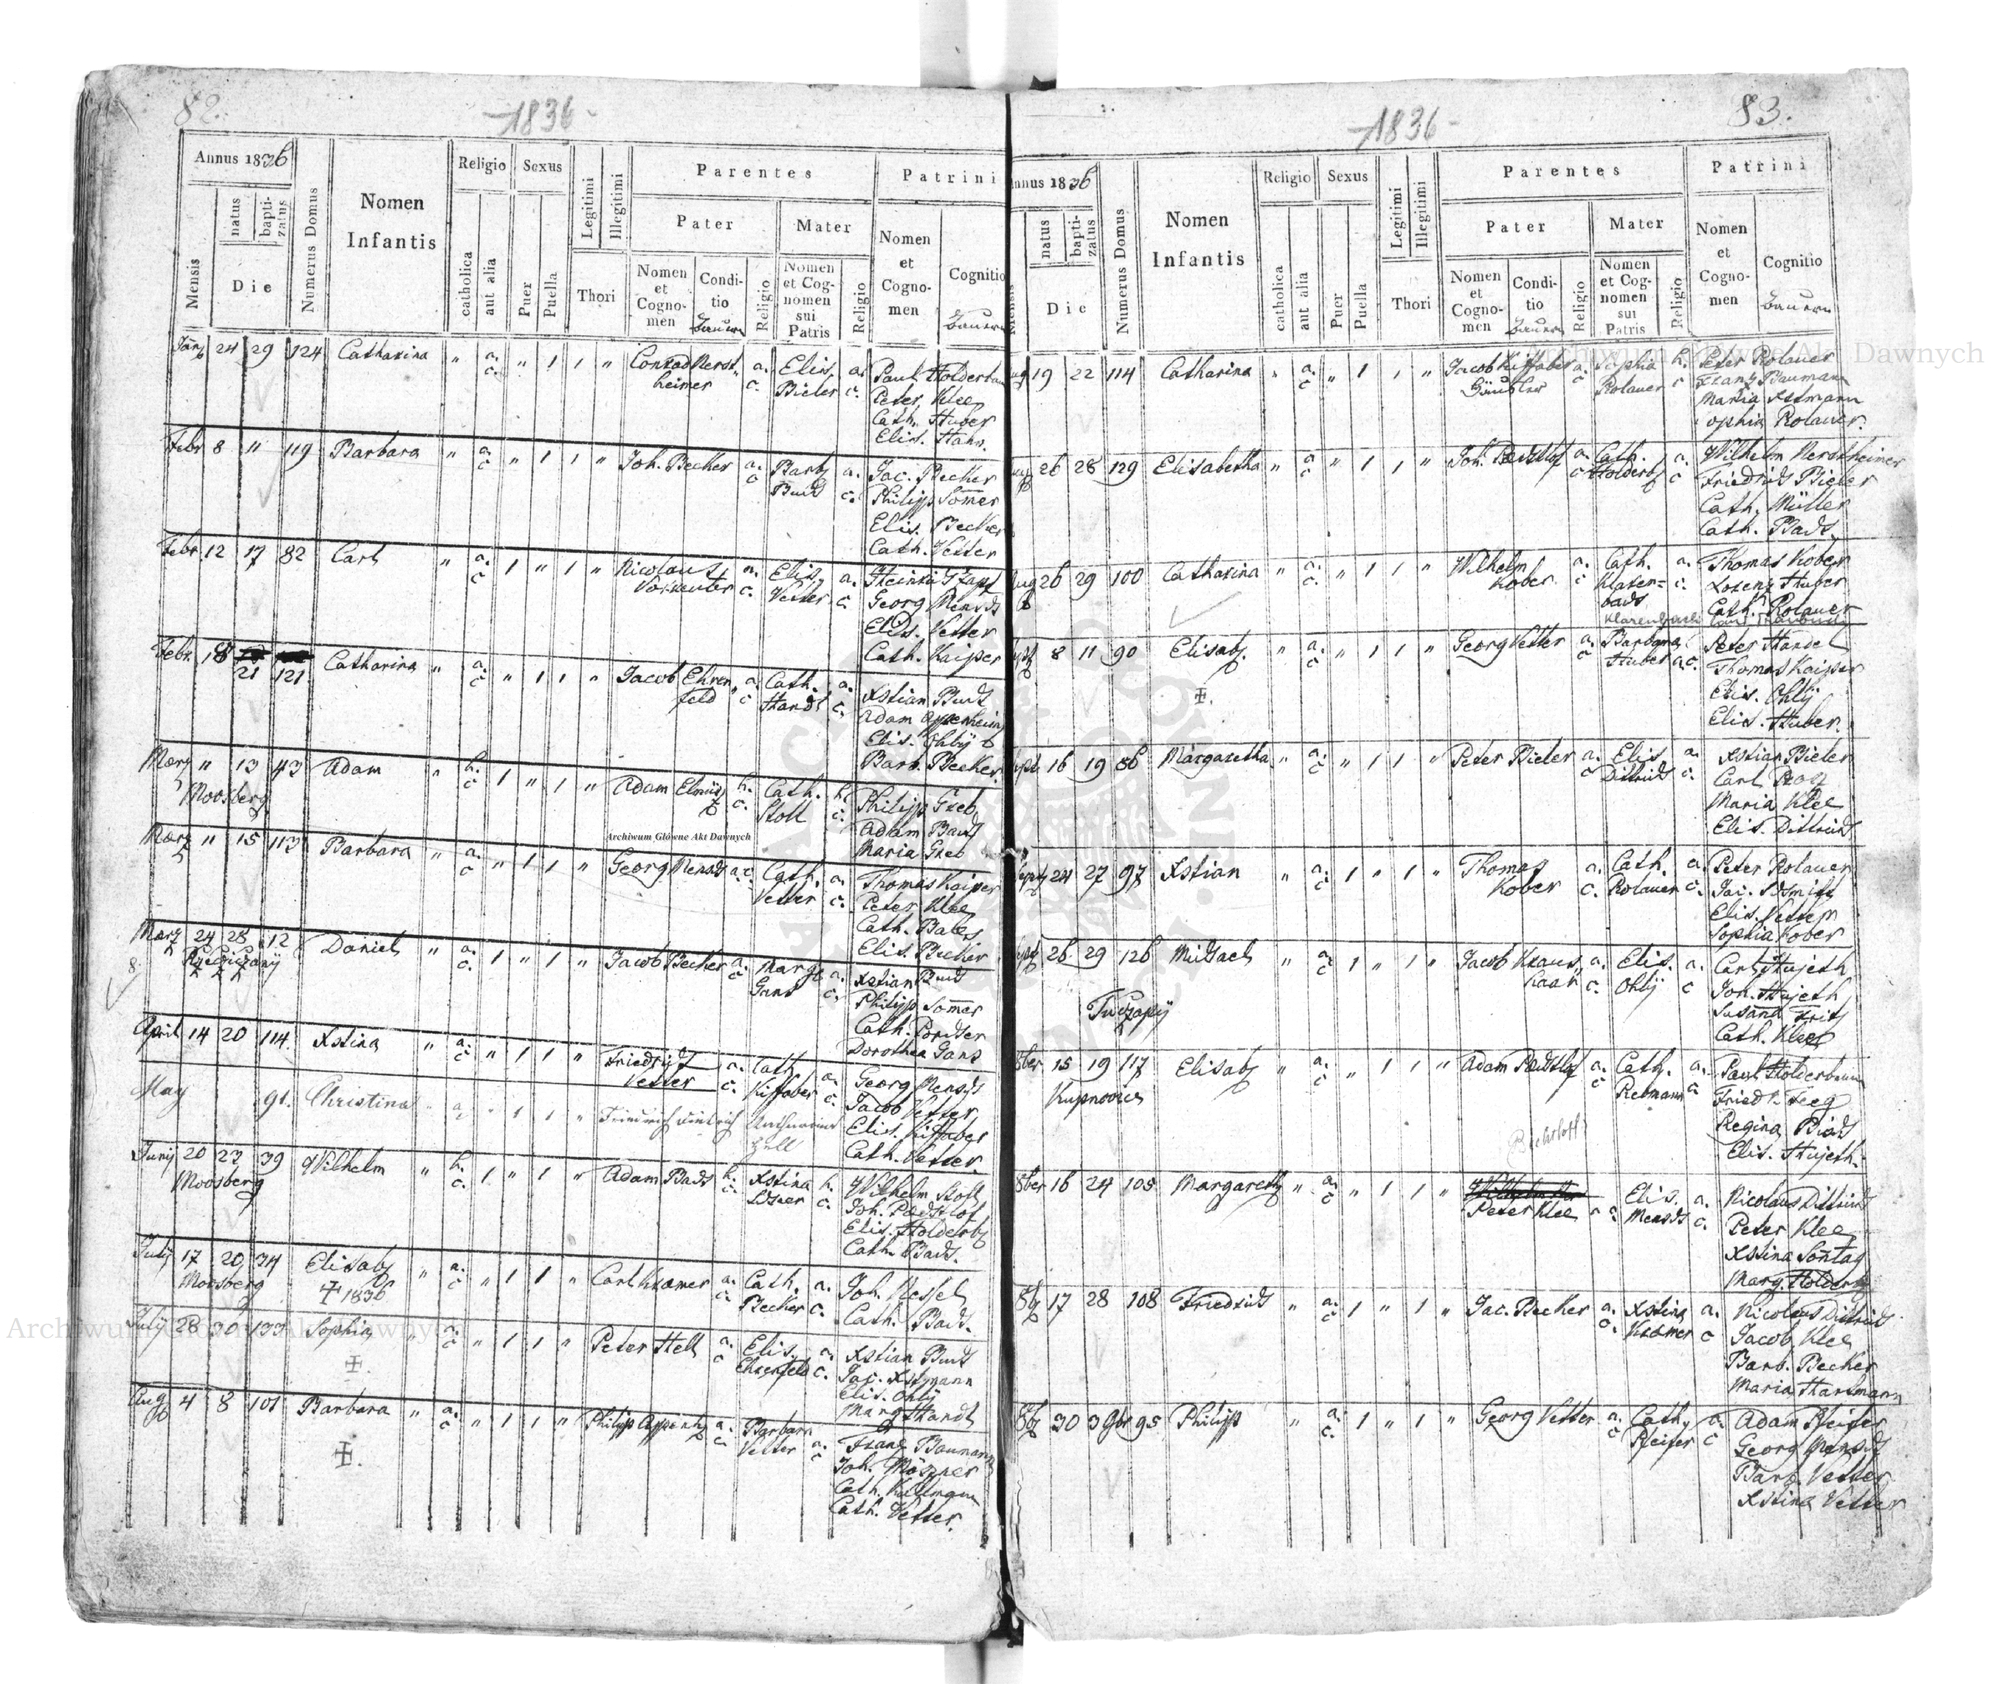 82.
-1836-
Annus 1836
Mensis
natus
bapti-
zatus
Die
Numerus Domus
Nomen
Infantis
Religio
catholica
aut alia
Sexus
Puer
Puella
Legitimi
Illegitimi
Thori
Parentes
Pater
Nomen
et
Cogno-
men
Condi-
tio
Bauern
Religio
Mater
Nomen
et Cog-
nomen
sui
Patris
Religio
Patrini
Nomen
et
Cogno-
men
Cognitio
Bauern
24 29 124 Catharina " a. c. " 1 1 " Conrad Nerst- a. c. Elis. a. c. Paul Holderbau
heimer Bieler Peter Klee
Cath. Huber
Elis. Hahn.
Febr 8 " 119 Barbara " a. c " 1 1 " Joh. Becker a. c Barb a. c. Jac. Becker
Philipp Somer
Elis. Becker
Cath. Vetter
Febr. 12 17 82 Carl " a. c 1 " 1 " Nicolaus a. c. Elis. a. c.
Vetter Georg Mensch
Elis. Vetter
Cath. Kaiper
Febr. 18 21 121 Catharina " a. c " 1 1 " Jacob Ehren a. c Cath. a. c. Xstian
feld Handt Adam Appenheim
Elis. Ohly
Barb. Becker.
Mærz " 13 43 Adam " h. c 1 " 1 " Adam h. c. Cath. h. c. Philipp Greb
Moosberg Stoll Adam
Maria Greb
Archiwum Główne Akt Dawnych
Mærz " 15 113 Barbara " a. c " 1 1 " Georg Mensch a. c. Cath. a. c. Thomas Kaiper
Vetter Peter Klee
Cath. Bales
Elis. Becker
Mærz 24 28 12 Daniel " a. c. 1 " 1 " Jacob Becker a. c Marg. a. c. Xstian
Rzeczyczany Gans Philipp Somer
Cath.
Dorothea Gans
April 14 20 114. Xstina " a. c " 1 1 " Friedrich a. c. Cath a. c. Georg Mensch
Vetter Kiffaber Jacob Vetter
May 91. Christina " a. " 1 1 " Friedrich Dietrich Katharina Elis. Kiffaber
Zell Cath. Vetter.
Juny 20 23 39 Wilhelm " h. c. 1 " 1 " Adam Bads h. c. Xstina h. c. Wilhelm Stoll
Moosberg Joh.
Elis. Holderb
Cath. Bads.
July 17 20 34 Elisab " a. c " 1 1 " Carl Kramer a. c Cath. a. c. Joh. Nessel
Moosberg ‡ 1836 Becker Cath. Bads.
July 28 30 133 Sophia " a. c " 1 1 " Peter Hell a. c Elis. a. c. Xstian
‡. Ehrenfeld Jac. Xstmann
Elis. Ohly
Marg Handt
Aug 4 8 101 Barbara " a. c. " 1 1 " Philipp Appenh a. c. Barbara a. c Franz Baumann
‡. Vetter Joh. Mössner
Cath. Kullmann
Cath. Vetter.
83.
-1836-
Annus 1836
Mensis
natus
bapti-
zatus
Die
Numerus Domus
Nomen
Infantis
Religio
catholica
aut alia
Sexus
Puer
Puella
Legitimi
Illegitimi
Thori
Parentes
Pater
Nomen
et
Cogno-
men
Condi-
tio
Bauern
Religio
Mater
Nomen
et Cog-
nomen
sui
Patris
Religio
Patrini
Nomen
et
Cogno-
men
Cognitio
Bauern
19 22 114 Catharina " a. c " 1 1 " Jacob Kiffaber a. c Sophia h. c Peter Rolauer
Rolauer Franz Baumann
Maria Xstmann
ophia Rolauer.
26 28 129 Elisabetha " a. c " 1 1 " Joh. a. c Cath. a. c Wilhelm Nerstheimer
Holderb Friedrich Bieler
Cath. Müller
Cath. Bads
Aug 26 29 100 Catharina " a. c. " 1 1 " Wilhelm a. c Cath. a. c. Thomas Kober
Kober Klaren= Lorenz Huber
bach Cath. Rolauer
Klarenbach
8 11 90 Elisab. " a. c " 1 1 " Georg Vetter a. c Barbara a. c. Peter Handel
‡. Huber Thomas Kaiper
Elis. Ohly
Elis. Huber.
Sept 16 19 86 Margaretha " a. c " 1 1 " Peter Bieler a. c Elis a. c. Xstian Bieler
Dittrich Carl
Maria Klee
Elis. Dittrich
Sept 24 27 97 Xstian " a. c 1 " 1 " Thomas a. c. Cath. a. c. Peter Rolauer
Kober Rolauer Jac. Schmitt
Elis. Vetter
Sophia Kober
Sept 26 29 126 Michael " a. c 1 " 1 " Jacob Kraus a. c. Elis. a. c Carl Hujeth
haar Ohly Joh. Hujeth
Tuczapy Susana Fritz
Cath. Klee
8ber 15 19 117 Elisab " a. c " 1 1 " Adam a. c Cath. a. c Paul Holderbaum
Kupnovice Rebmann
Regina
Bechtloff Elis. Hujeth.
8ber 16 24 105 Margareth " a. c " 1 1 " Peter Klee a. Elis. a. c. Nicolaus Dittrich
Mensch Peter Klee
Xstina Sontag
Marg. Holderb
8b 17 28 108 Friedrich " a. c 1 " 1 " Jac. Becker a. c. Xstina a. c Nicolaus Dittrich
Kramer Jacob Klee
Barb. Becker
Maria Hartmann
8b 30 3 9br 95 Philipp " a. c. 1 " 1 " Georg Vetter a. c Cath. a. c Adam Pfeifer
Pfeifer Georg Mensch
Barb Vetter
Xstina Vetter
Archiwum Główne Akt Dawnych